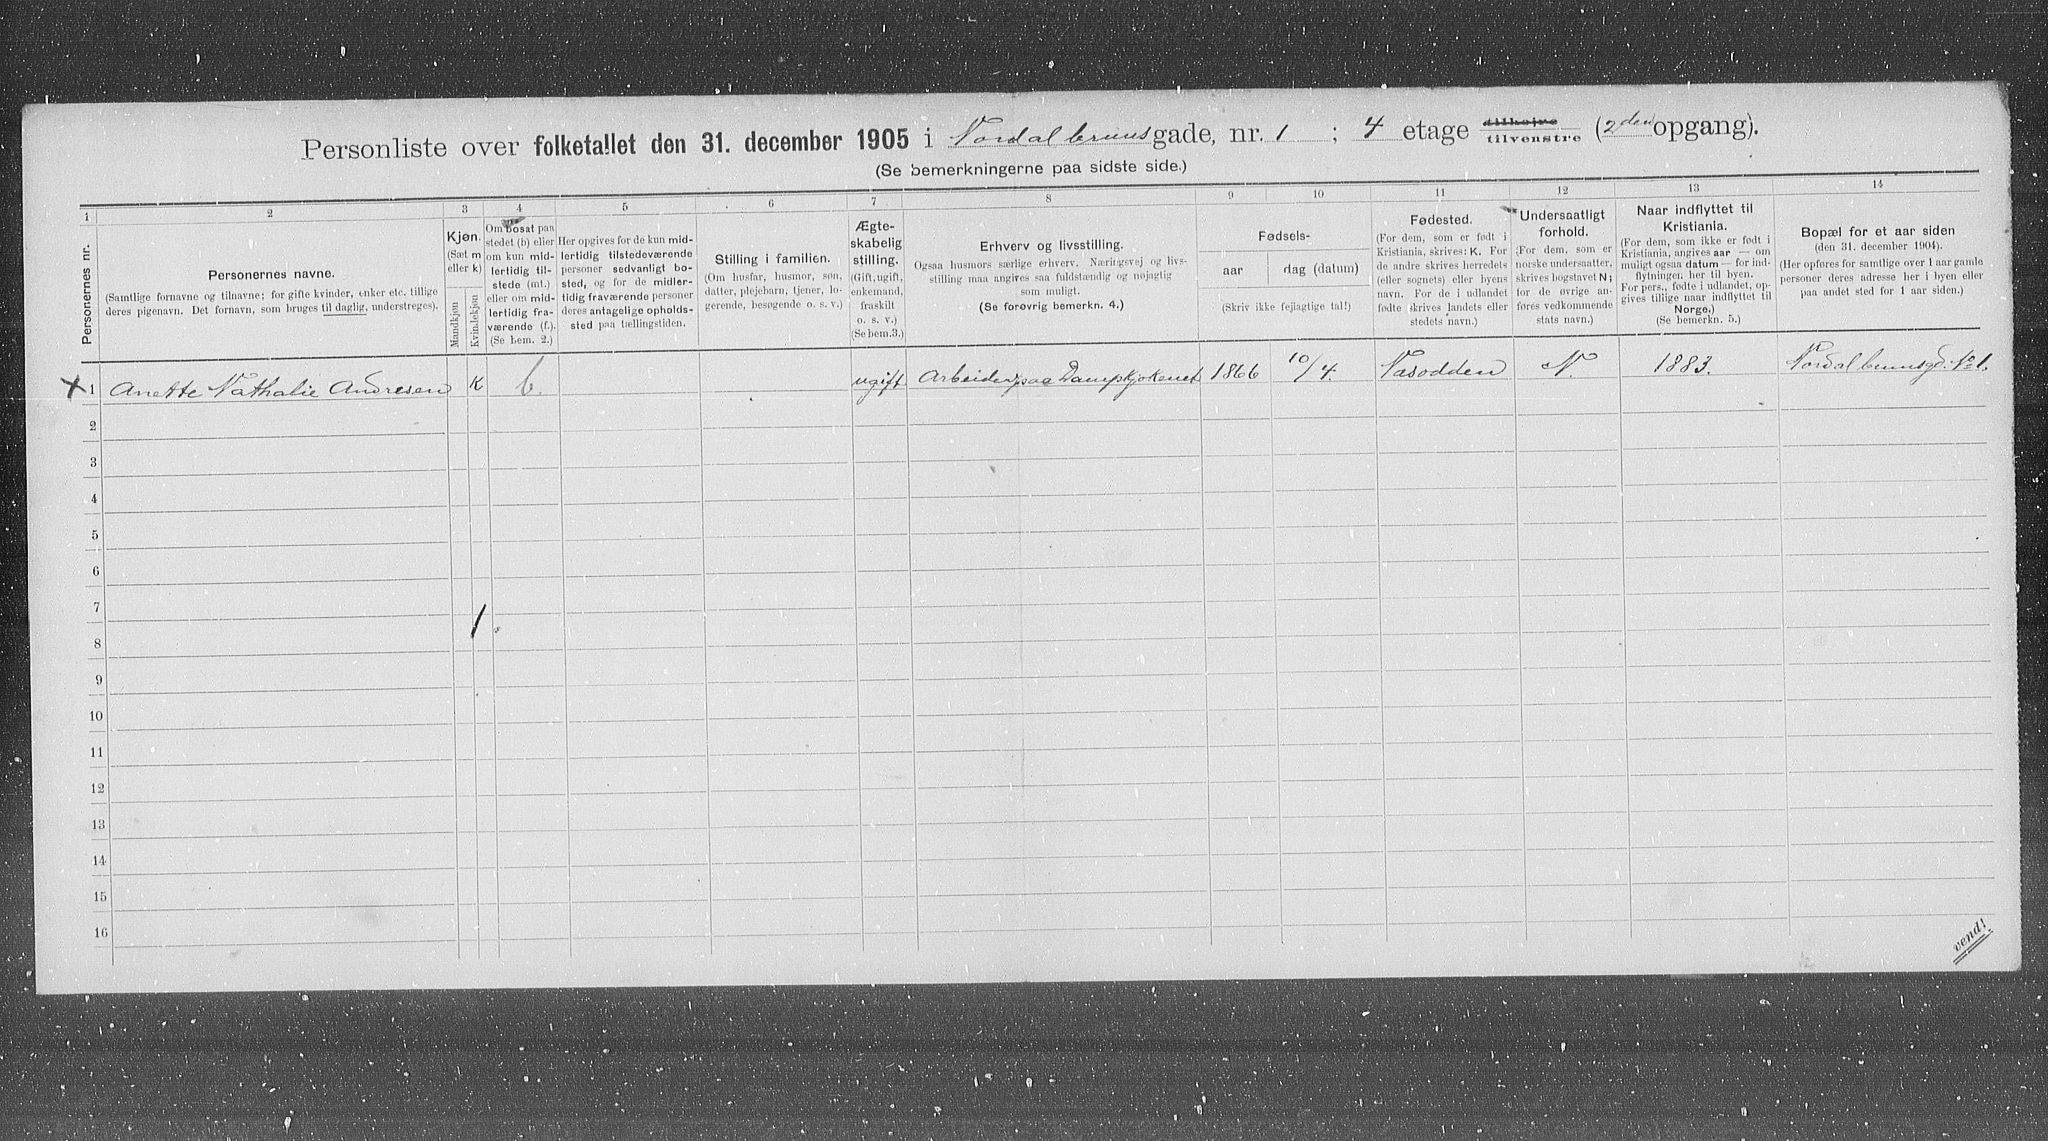 Personliste over folketallet den 31. december 1905 i Nordal brunsgade, nr. 1 ; 4 etage tilhøjre tilvenstre (2den opgang).
(Se bemerkningerne paa sidste side.)
1 2 3 4 5 6 7 8 9 10 11 12 13 14
Personernes nr.
Personernes navne.
(Samtlige fornavne og tilnavne; for gifte kvinder, enker etc. tillige
deres pigenavn. Det fornavn, som bruges til daglig, understreges).
Kjøn.
(Sæt m
eller k)
Mandkjøn
Kvindekjøn
Om bosat paa
stedet (b) eller
om kun mid-
lertidig til-
stede (mt.)
eller om mid-
lertidig fra-
værende (f.).
(Se bem. 2.)
Her opgives for de kun mid-
lertidig tilstedeværende
personer sedvanligt bo-
sted, og for de midler-
tidig fraværende personer
deres antagelige opholds-
sted paa tællingstiden.
Stilling i familien.
(Om husfar, husmor, søn,
datter, plejebarn, tjener, lo-
gerende, besøgende o. s. v.)
Ægte-
skabelig
stilling.
(Gift, ugift,
enkemand,
fraskilt
o. s. v.)
(Se bem.3.)
Erhverv og livsstilling.
Ogsaa husmors særlige erhverv. Næringsvej og livs-
stilling maa angives saa fuldstændig og nøjagtig
som muligt.
(Se forøvrig bemerkn. 4.)
Fødsels-
aar
dag (datum)
(Skriv ikke fejlagtige tal!)
Fødested.
(For dem, som er født i
Kristiania, skrives: K. For
de andre skrives herredets
(eller sognets) eller byens
navn. For de i udlandet
fødte skrives landets eller
stedets navn.)
Undersaatligt
forhold.
(For dem, som er
norske undersaatter,
skrives bogstavet N;
for de øvrige an-
føres vedkommende
stats navn.)
Naar indflyttet til
Kristiania.
(For dem, som ikke er født i
Kristiania, angives aar — om
muligt ogsaa datum — for ind-
flytningen her til byen.
For pers., fødte i udlandet, op-
gives tillige naar indflyttet til
Norge.)
(Se bemerkn. 5.)
Bopæl for et aar siden
(den 31. december 1904).
(Her opføres for samtlige over 1 aar gamle
personer deres adresse her i byen eller
paa andet sted for 1 aar siden.)
x 1 Anette Nathalie Andresen K b. ugift Arbeider paa Dampkjøkenet 1866 10/4. Nasodden N 1883. Nordal brunsgd. No 1.
2
3
4
5
6
7
1
8
9
10
11
12
13
14
15
16
vend!